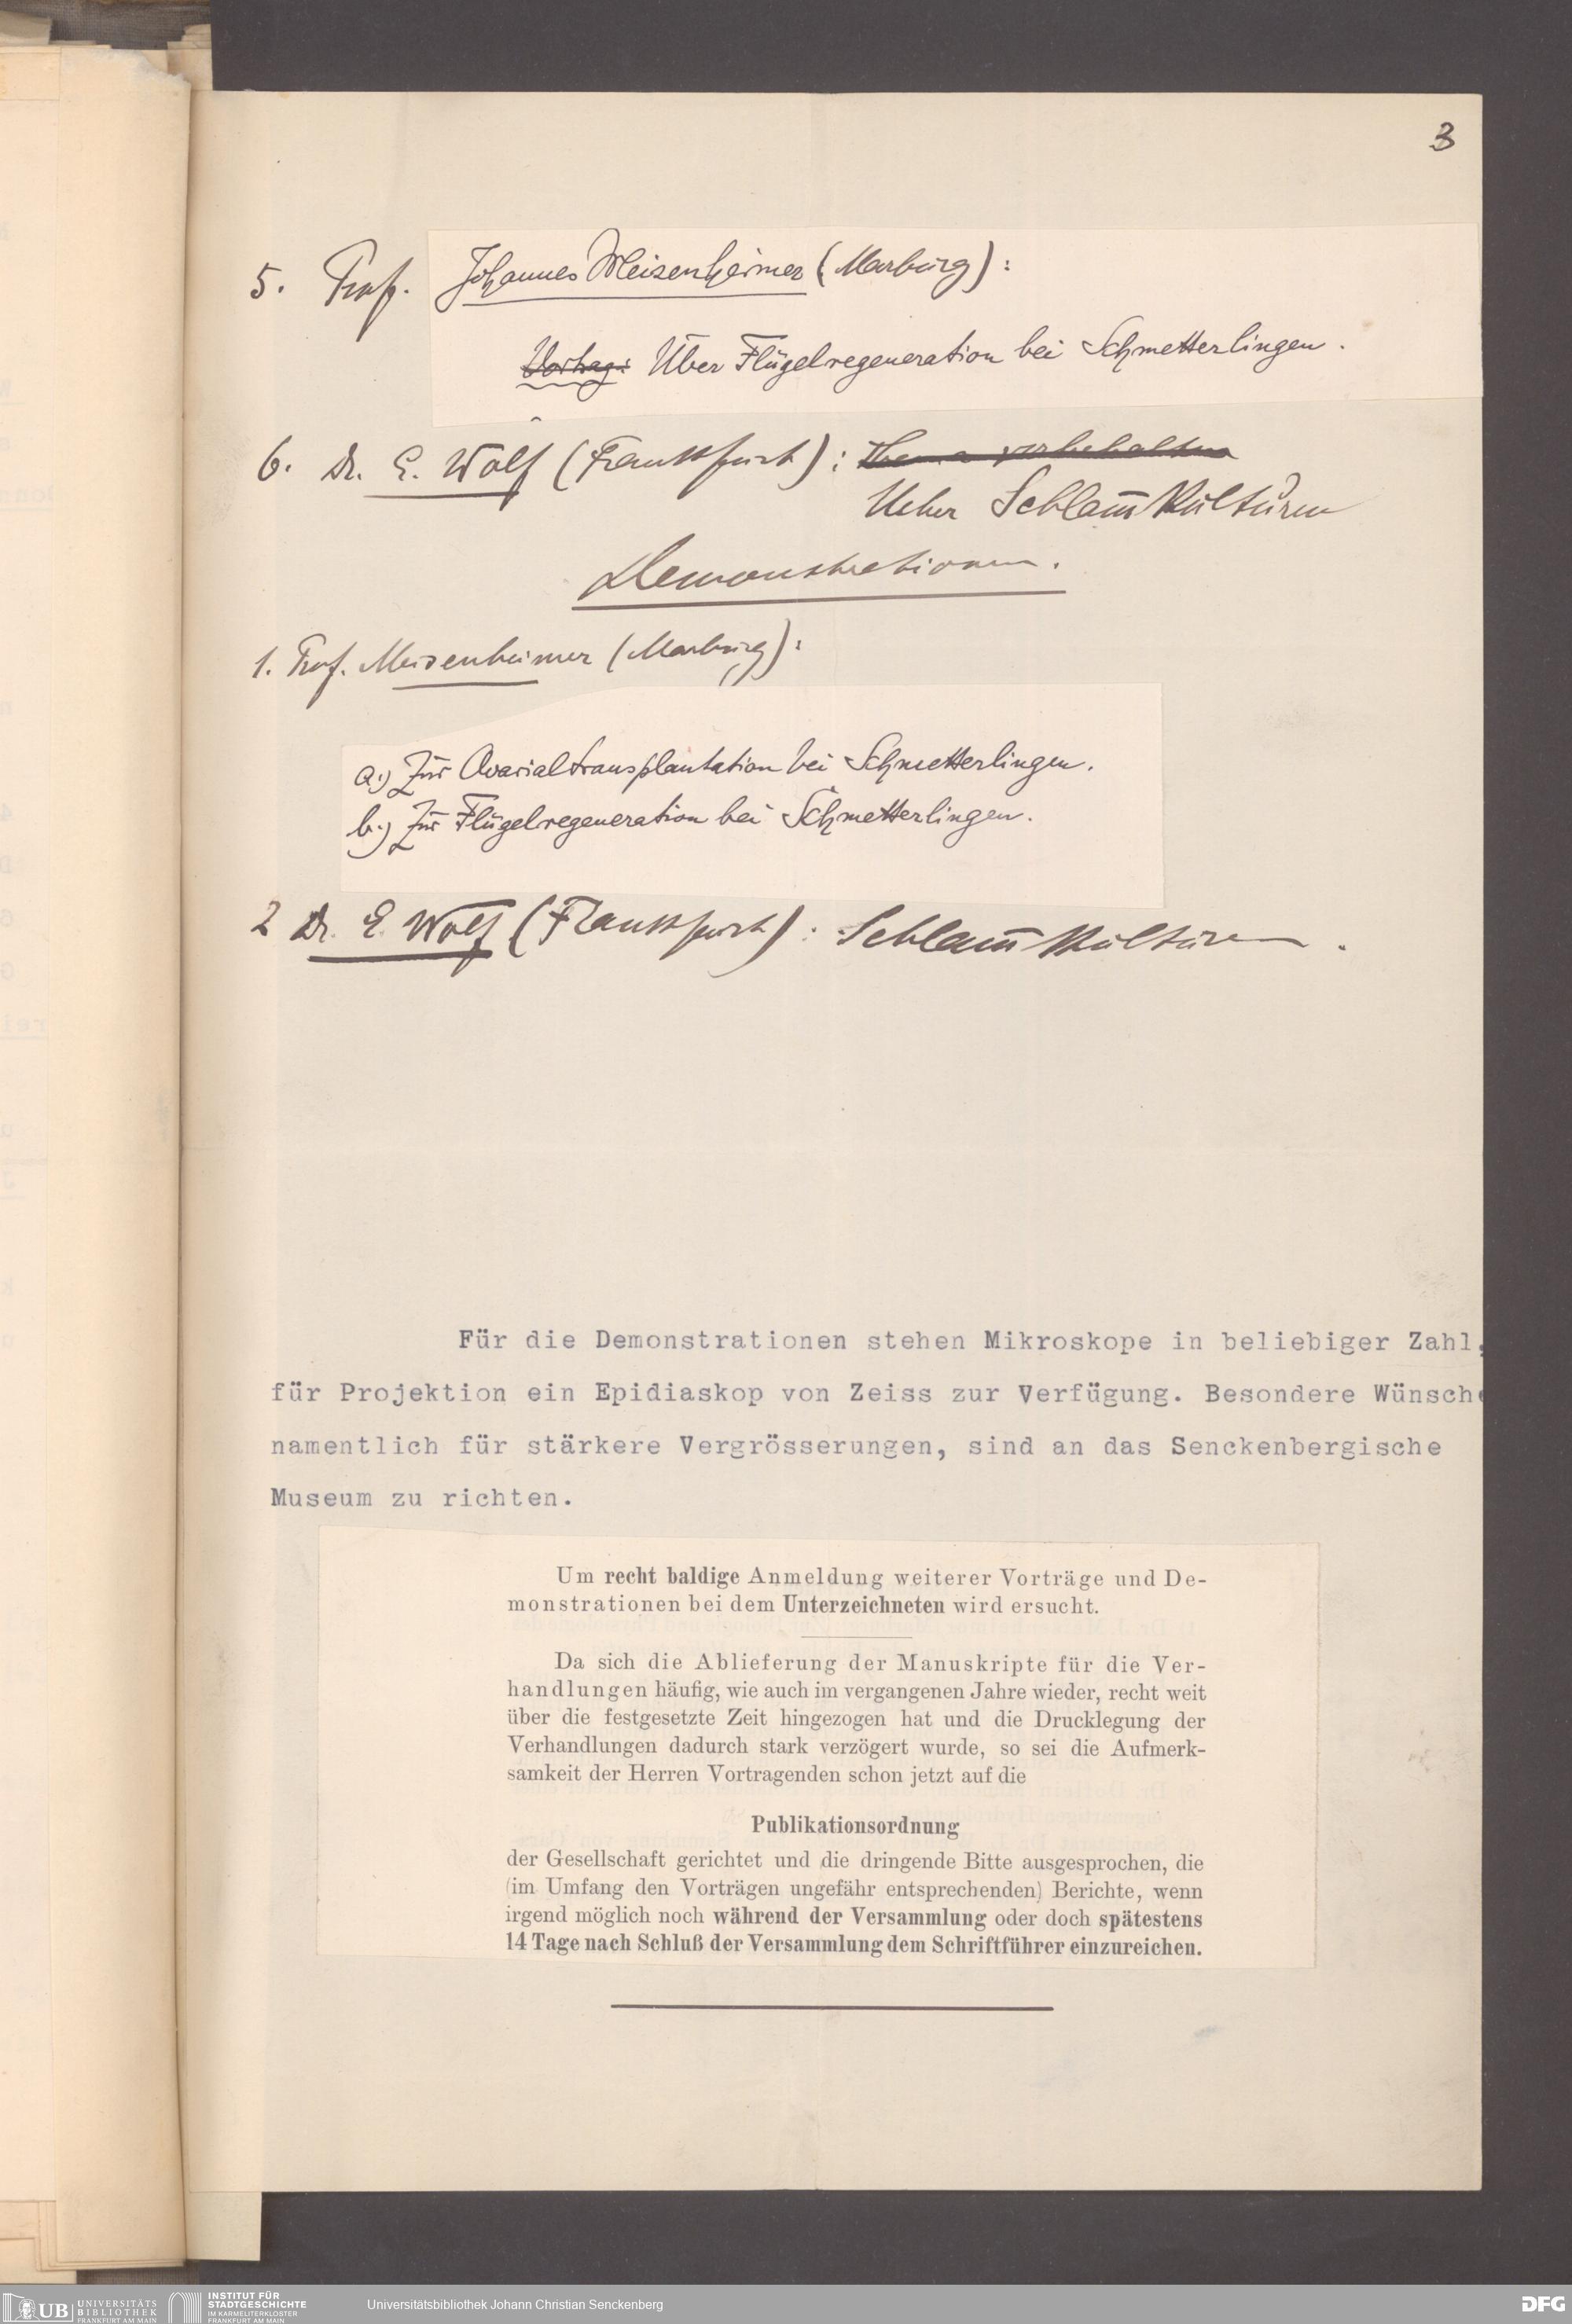 3
5. Prof. Johannes Meisenheimer (Marburg):
Vortrag: Über Flügelregeneration bei Schmetterlingen.
6. Dr. E. Wolf (Frankfurt): Thema vorbehalten
Ueber Schlam̅kulturen
Demonstrationen.
1. Prof. Meisenheimer (Marburg):
a.) Zur Ovarialtransplantation bei Schmetterlingen.
b.) Zur Flügelregeneration bei Schmetterlingen.
2 Dr. E. Wolf (Frankfurt): Schlam̅kulturen.
Für die Demonstrationen stehen Mikroskope in beliebiger Zahl,
für Projektion ein Epidiaskop von Zeiss zur Verfügung. Besondere Wünsche
namentlich für stärkere Vergrösserungen, sind an das Senckenbergische
Museum zu richten.
Um recht baldige Anmeldung weiterer Vorträge und De-
monstrationen bei dem Unterzeichneten wird ersucht.
Da sich die Ablieferung der Manuskripte für die Ver-
handlungen häufig, wie auch im vergangenen Jahre wieder, recht weit
über die festgesetzte Zeit hingezogen hat und die Drucklegung der
Verhandlungen dadurch stark verzögert wurde, so sei die Aufmerk-
samkeit der Herren Vortragenden schon jetzt auf die
Publikationsordnung
der Gesellschaft gerichtet und die dringende Bitte ausgesprochen, die
(im Umfang den Vorträgen ungefähr entsprechenden) Berichte, wenn
irgend möglich noch während der Versammlung oder doch spätestens
14 Tage nach Schluß der Versammlung dem Schriftführer einzureichen.
UB UNIVERSITÄTS BIBLIOTHEK FRANKFURT AM MAIN
INSTITUT FÜR STADTGESCHICHTE IM KARMELITERKLOSTER FRANKFURT AM MAIN
Universitätsbibliothek Johann Christian Senckenberg
DFG